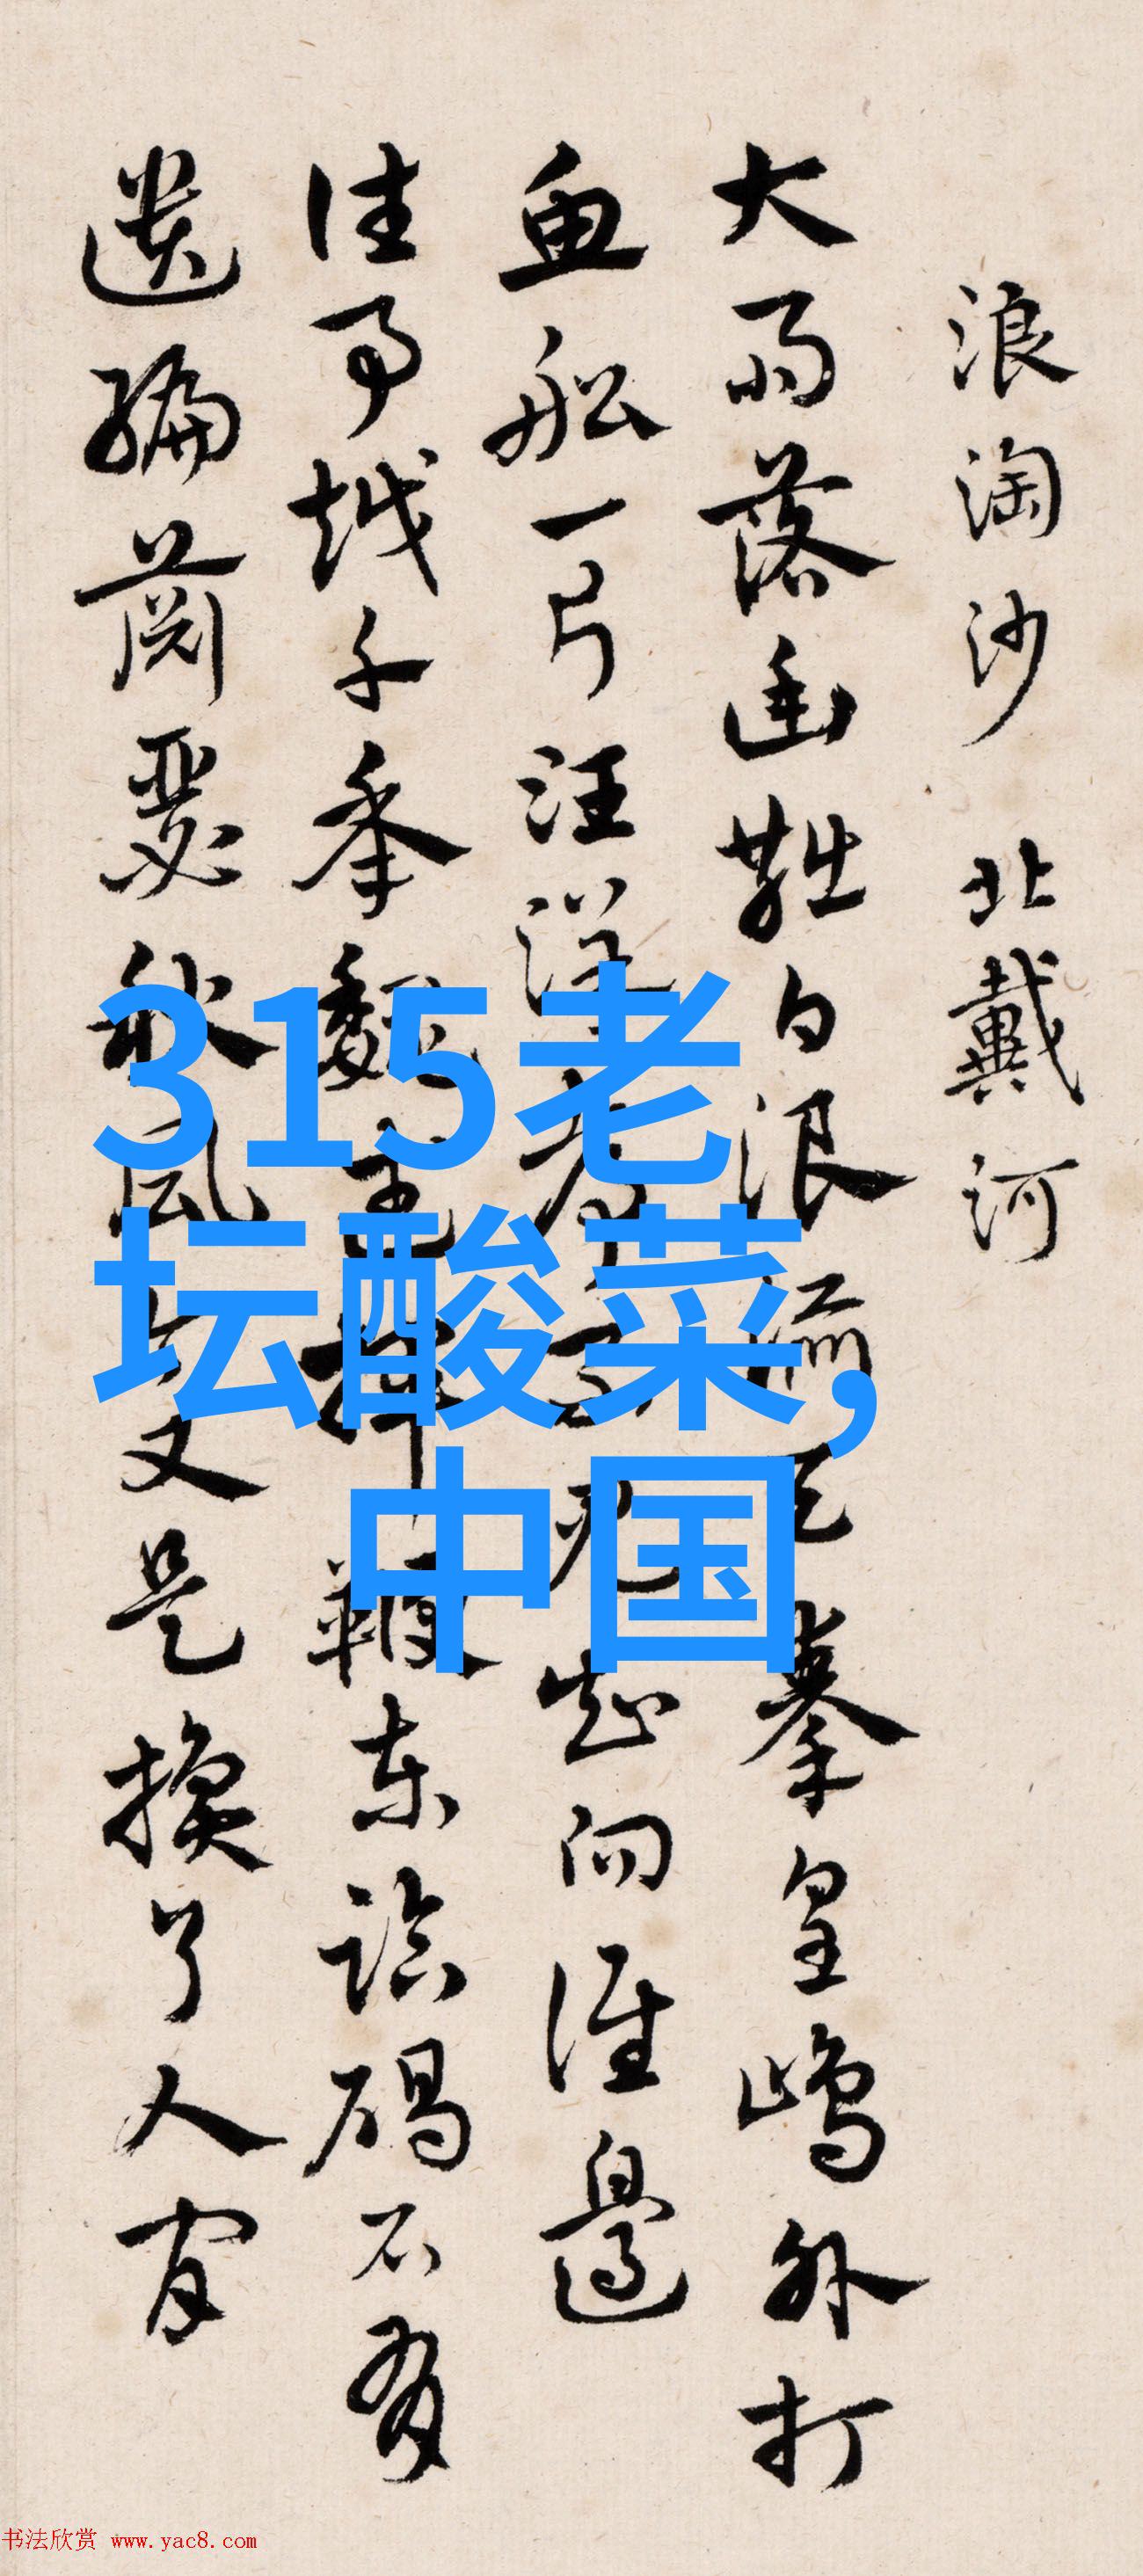 浪淘沙 北戴河
大雨落幽燕白浪滔天秦皇嶋外打
魚船一片汪洋都不見知向誰邊
往事越千年魏武揮鞭東臨碣石有
遺編蕭瑟秋風今又是換了人間
315老
坛酸菜,
中国
书法欣赏 www.yac8.com